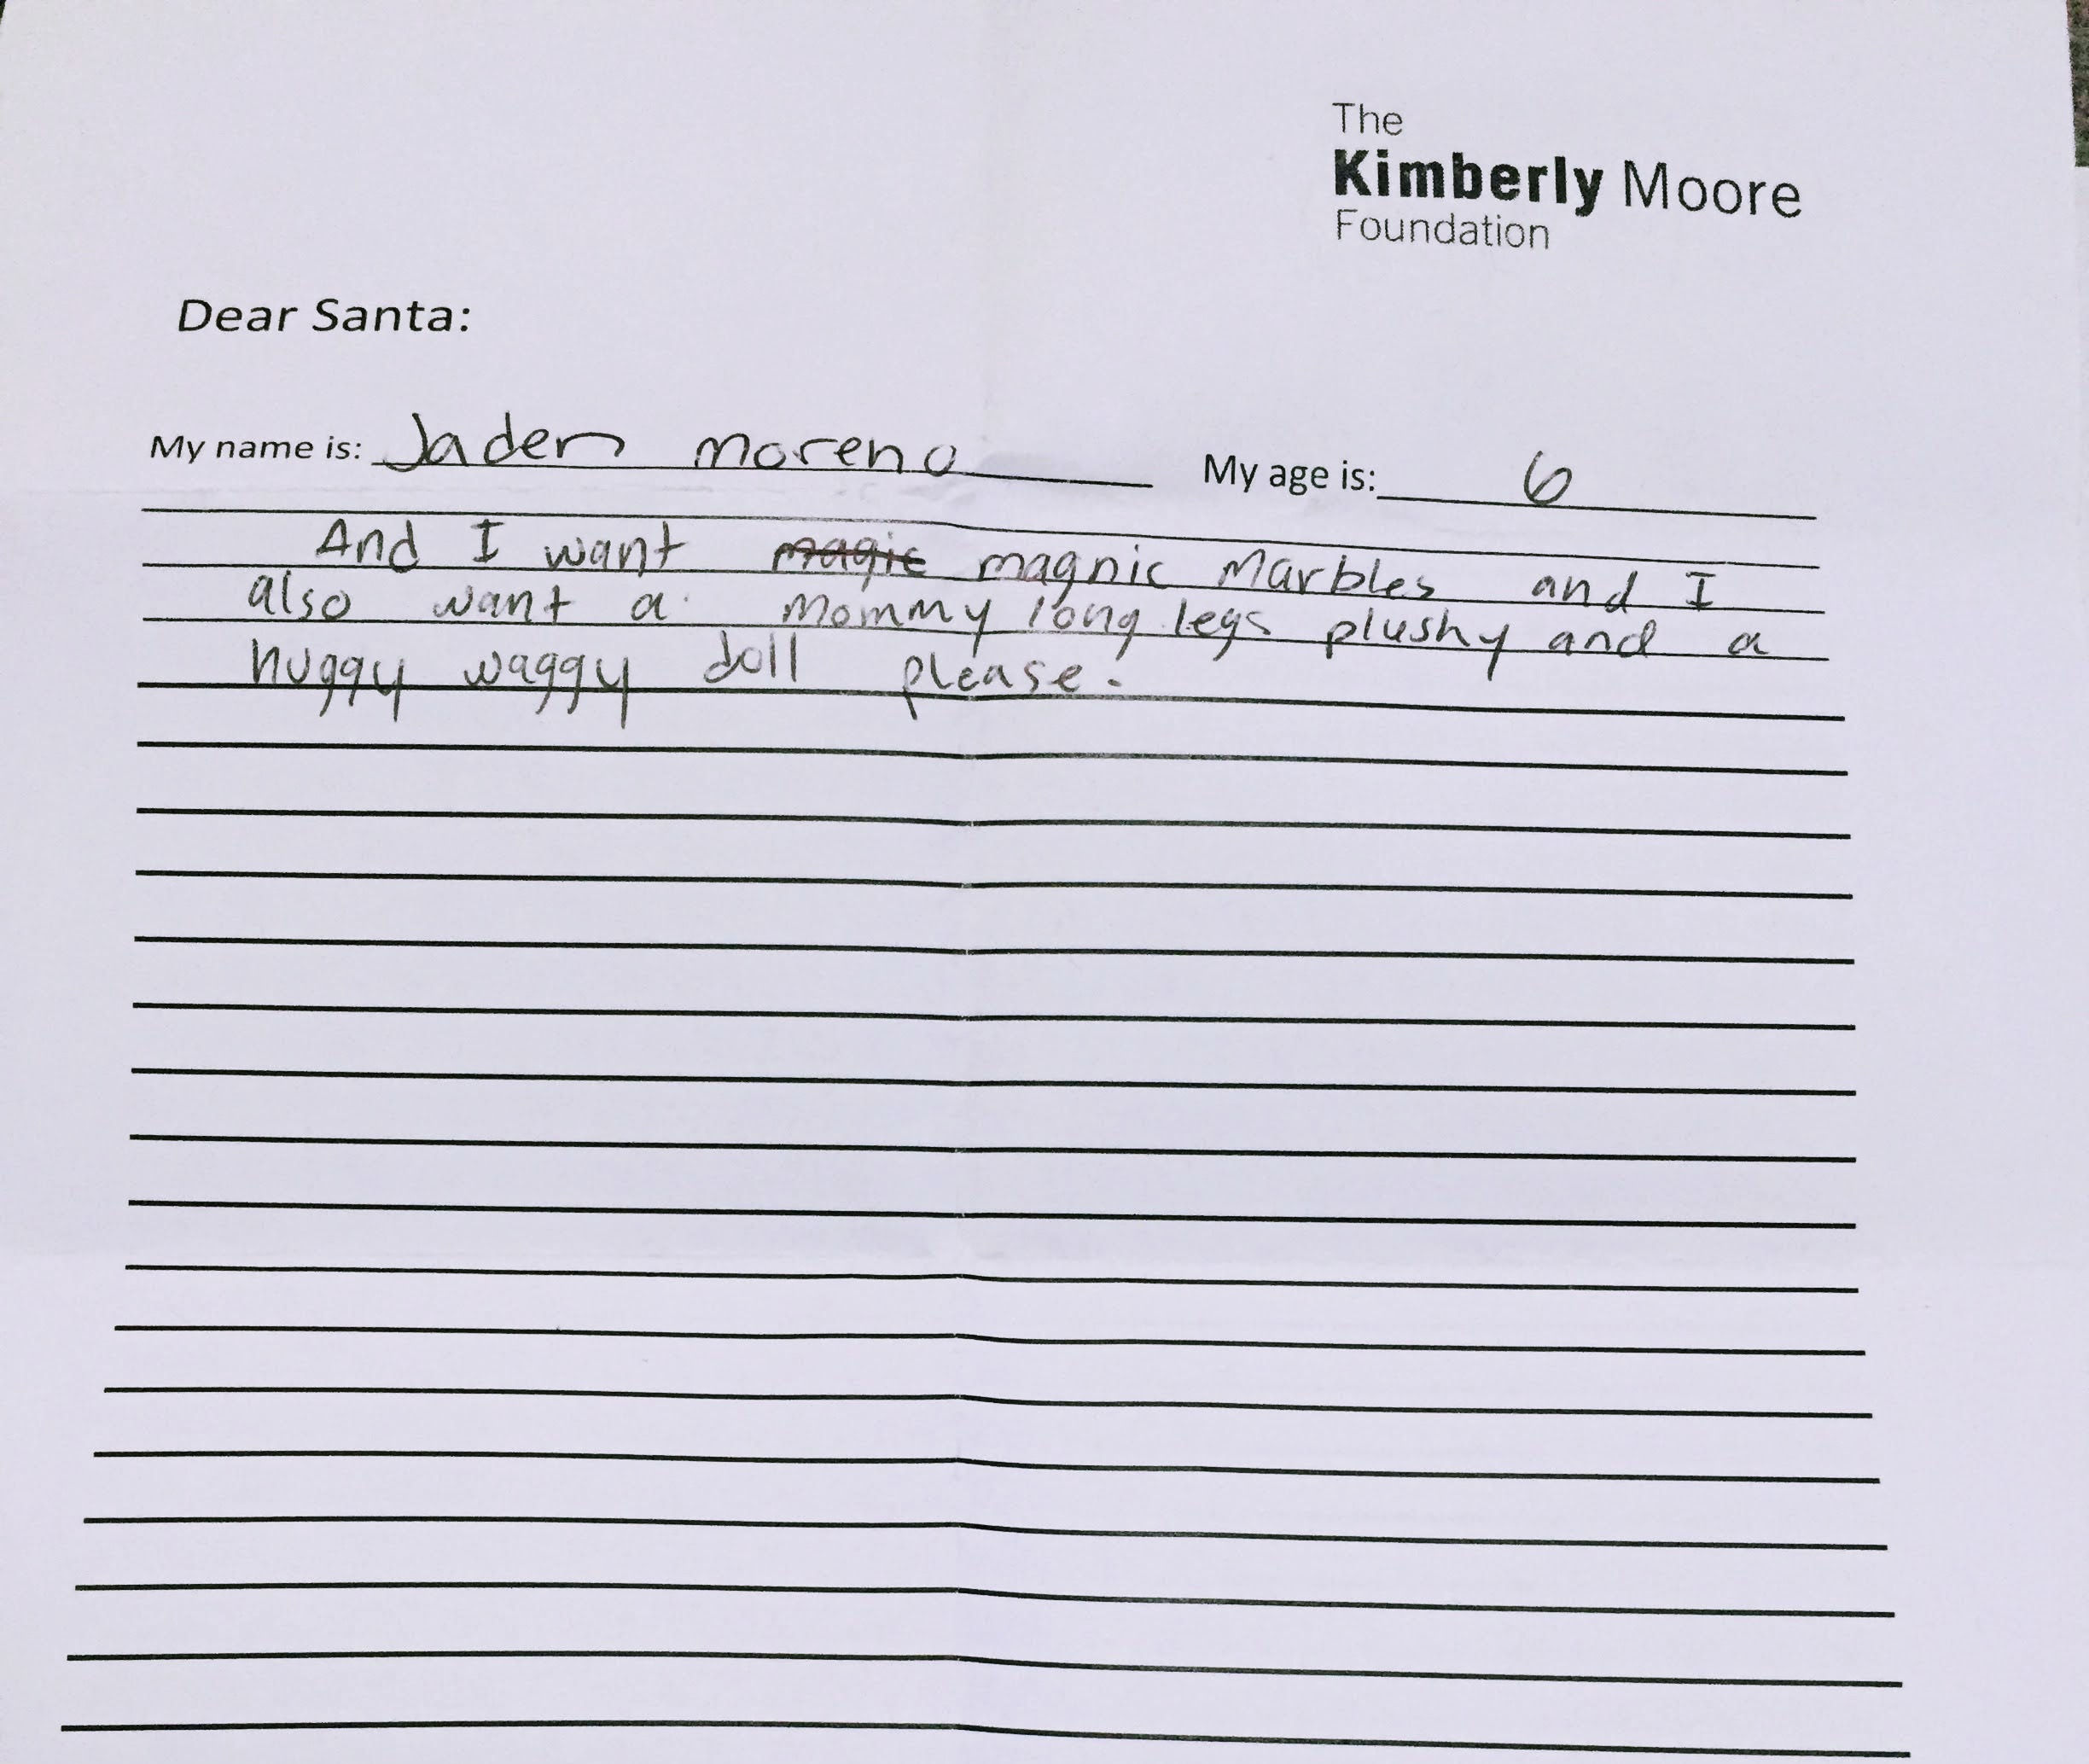 The
Kimberly Moore
Foundation
Dear Santa:
My name is: Jaden moreno My age is: 6
And I want magic magnic Marbles and I
also want a mommy long legs plushy and a
huggy waggy doll please.